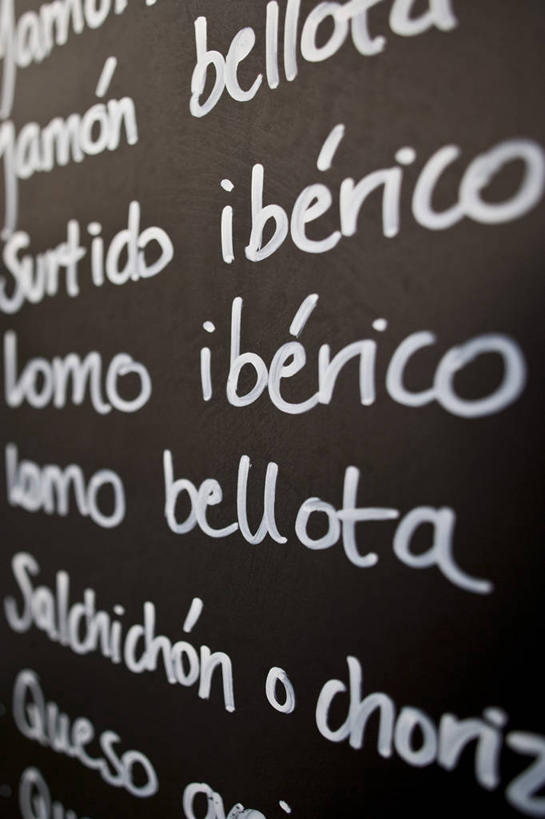 Jamón
Jamón bellota
Surtido ibérico
lomo ibérico
lomo bellota
Salchichón o choriz
Queso